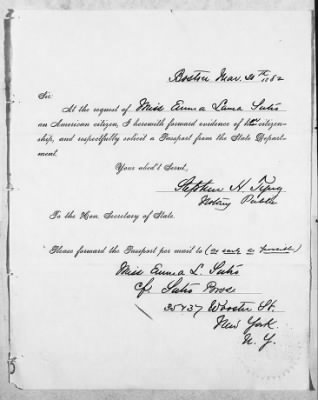 Boston Mar. 20th 1882
Sir
At the request of Miss Emma Luna Sutro
an American citizen, I herewith forward evidence of her citizen-
ship, and respectfully solicit a Passport from the State Depart-
ment.
Your obed't Servt,
Stephen H.
Notary Public
To the Hon. Secretary of State.
Please forward the Passport per mail to (as early as possible)
Miss Emma L. Sutro
c/o Sutro Bros
35 & 37 Wooster St.
New York
N. Y.